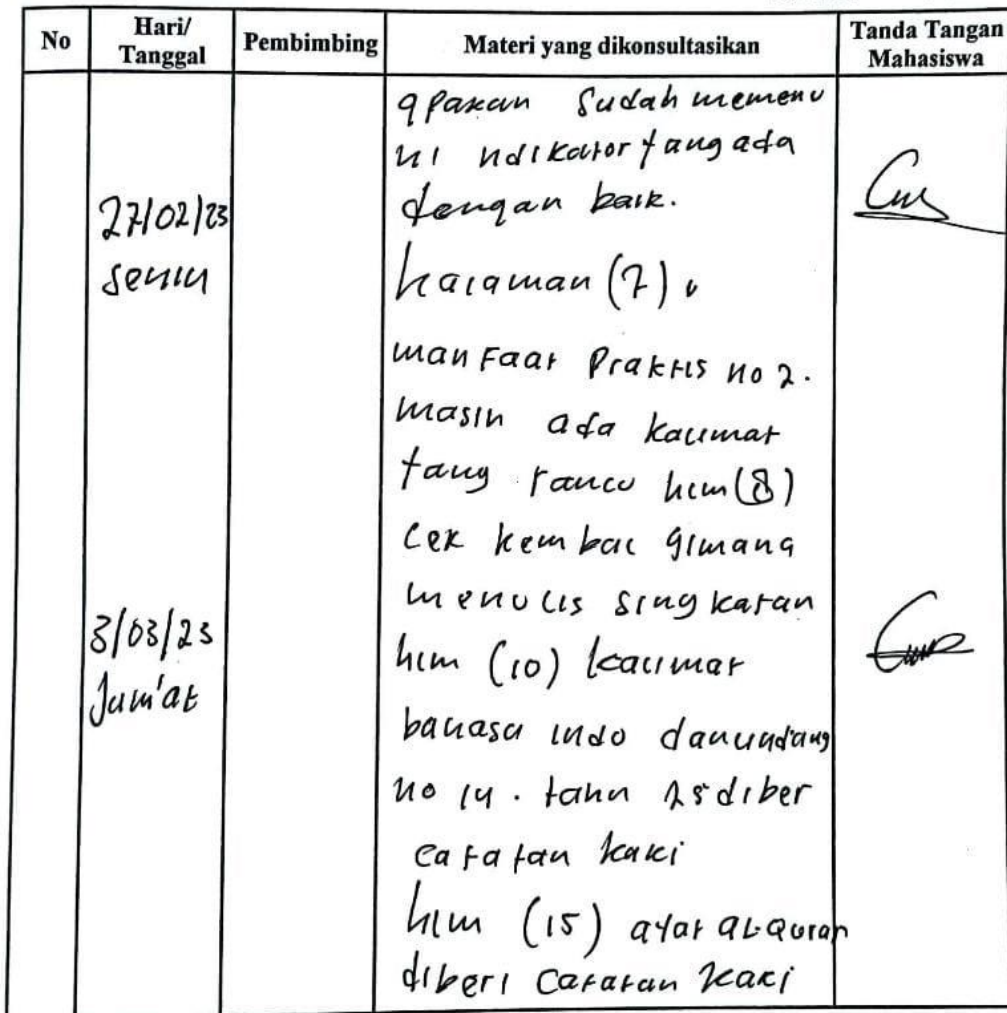 No
Hari/
Tanggal
Pembimbing
Materi yang dikonsultasikan
Tanda Tangan
Mahasiswa
apakan sudah memenu
hi ndikator yang ada
dengan baik.
27/02/23
senin
halaman (7)
manfaat Praktis no 2.
masih ada kalimat
yang rancu hlm (8)
cek kembal gimana
menulis singkatan
3/03/23
Jum'at
hlm (10) kalimat
bahasa indo dan undang
no 14. tahn diber
catatan kaki
hlm (15) ayat al-Quran
diberi catatan kaki